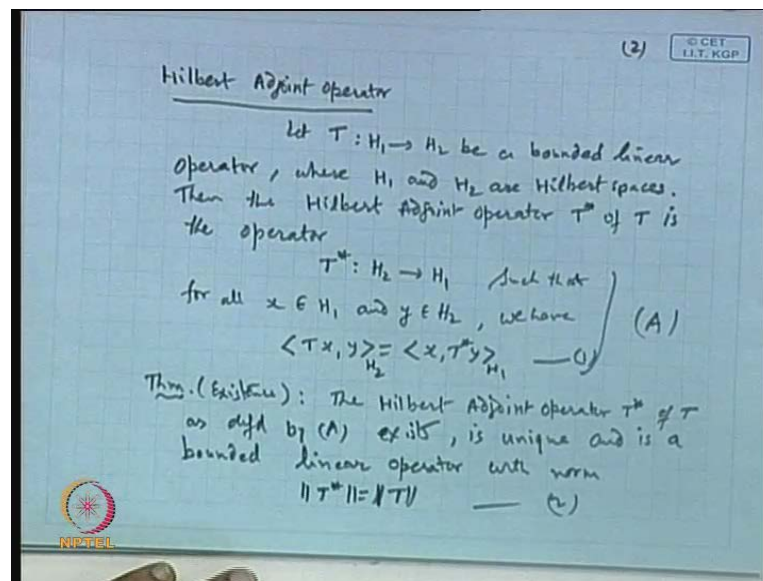 (2)
© CET
I.I.T. KGP
Hilbert Adjoint Operator
Let T : H₁ → H₂ be a bounded linear
operator, where H₁ and H₂ are Hilbert spaces.
Then the Hilbert Adjoint operator T* of T is
the operator
T* : H₂ → H₁ such that
for all x ∈ H₁ and y ∈ H₂, we have
(A)
<Tx, y>_H₂ = <x, T*y>_H₁ — (1)
Thm. (Existence) : The Hilbert Adjoint operator T* of T
as dfd by (A) exists, is unique and is a
bounded linear operator with norm
||T*|| = ||T|| — (2)
NPTEL